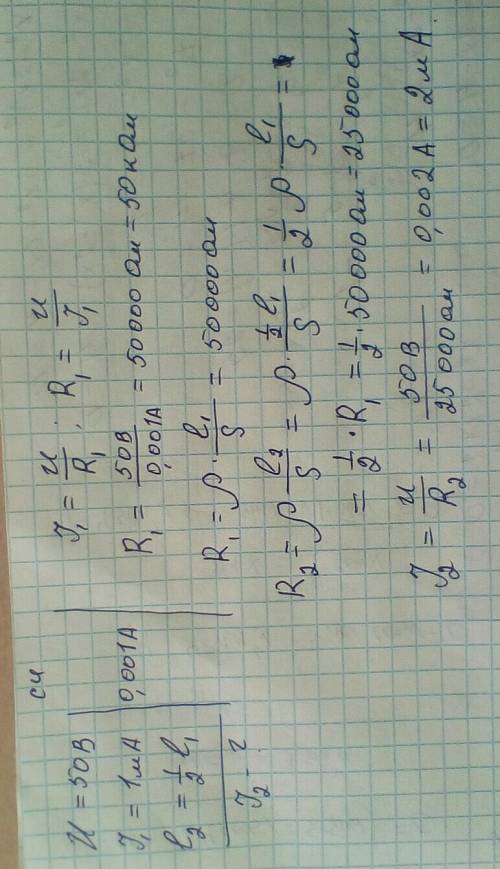 СИ
U = 50В
I₁ = 1мА 0,001А
l₂ = 1/2 l₁
I₂ - ?
I₁ = U/R₁; R₁ = U/I₁
R₁ = 50В/0,001А = 50000 Ом = 50 кОм
R₁ = ρ · l₁/S = 50000 Ом
R₂ = ρ l₂/S = ρ · (1/2 l₁)/S = 1/2 ρ · l₁/S =
= 1/2 · R₁ = 1/2 · 50000 Ом = 25000 Ом
I₂ = U/R₂ = 50В/25000 Ом = 0,002А = 2мА.